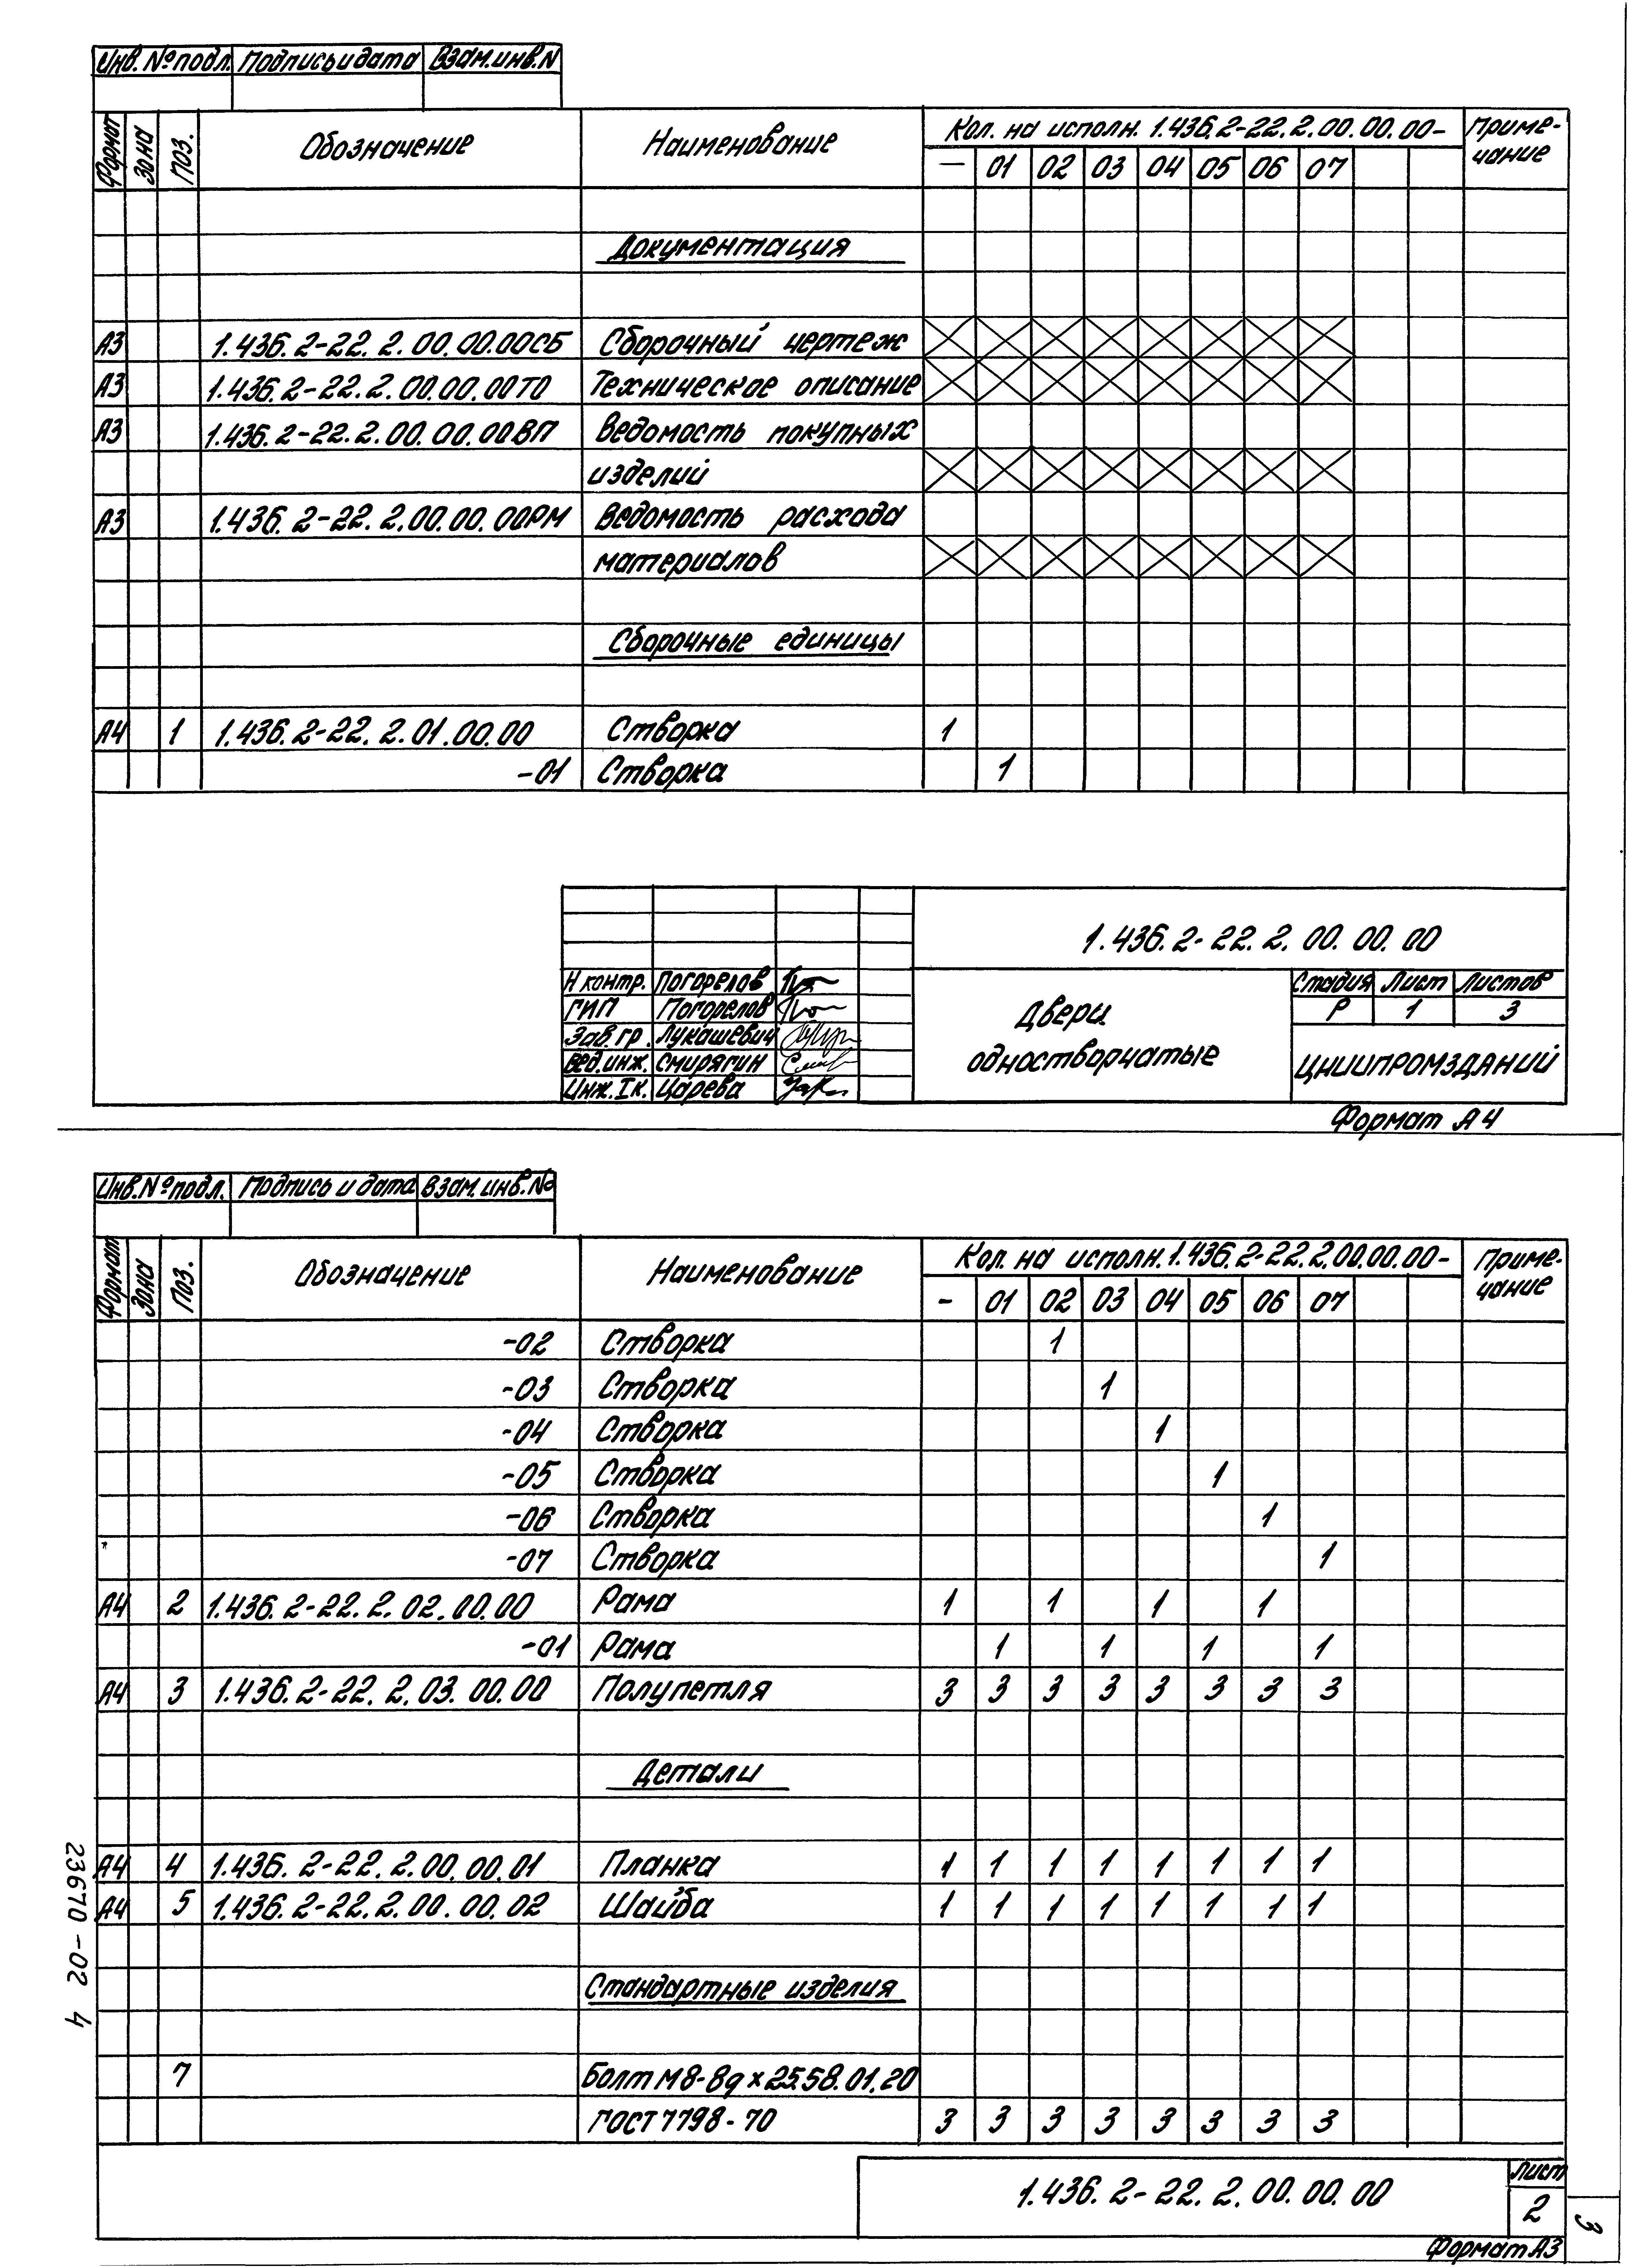 Инв. № подл. Подпись и дата Взам. инв. N
Формат Зона Поз. Обозначение Наименование Кол. на исполн. 1.436.2-22.2.00.00.00- Приме-
чание
— 01 02 03 04 05 06 07
Документация
А3 1.436.2-22.2.00.00.00СБ Сборочный чертеж
А3 1.436.2-22.2.00.00.00ТО Техническое описание
А3 1.436.2-22.2.00.00.00ВП Ведомость покупных
изделий
А3 1.436.2-22.2.00.00.00РМ Ведомость расхода
материалов
Сборочные единицы
А4 1 1.436.2-22.2.01.00.00 Створка 1
-01 Створка 1
1.436.2-22.2.00.00.00
Н контр. Погорелов
ГИП Погорелов
Зав. гр. Лукашевич
Вед. инж. Смирягин
Инж. I к. Царева
Двери
одностворчатые
Стадия Лист Листов
Р 1 3
ЦНИИПРОМЗДАНИЙ
Формат А4
Инв. № подл. Подпись и дата Взам. инв. №
Формат Зона Поз. Обозначение Наименование Кол. на исполн. 1.436.2-22.2.00.00.00- Приме-
чание
- 01 02 03 04 05 06 07
-02 Створка 1
-03 Створка 1
-04 Створка 1
-05 Створка 1
-06 Створка 1
-07 Створка 1
А4 2 1.436.2-22.2.02.00.00 Рама 1 1 1 1
-01 Рама 1 1 1 1
А4 3 1.436.2-22.2.03.00.00 Полупетля 3 3 3 3 3 3 3 3
Детали
А4 4 1.436.2-22.2.00.00.01 Планка 1 1 1 1 1 1 1 1
А4 5 1.436.2-22.2.00.00.02 Шайба 1 1 1 1 1 1 1 1
Стандартные изделия
7 Болт М8-8g×25.58.01.20
ГОСТ 7798-70 3 3 3 3 3 3 3 3
1.436.2-22.2.00.00.00
Лист
2
Формат А3
23670-02 4
3